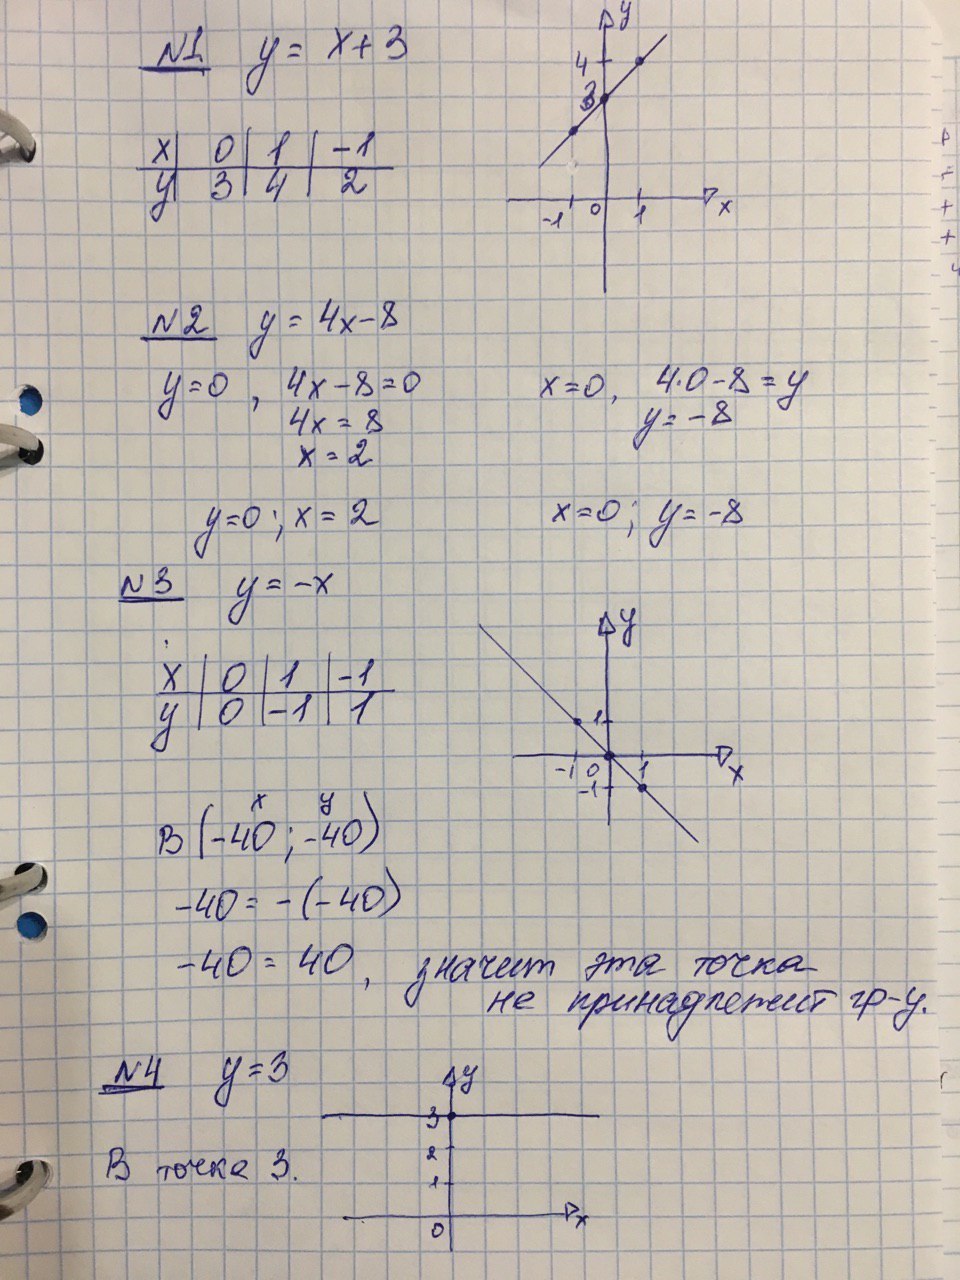 N1 y = x + 3
x | 0 | 1 | -1
y | 3 | 4 | 2
y
4
3
-1 0 1 x
N2 y = 4x - 8
y = 0, 4x - 8 = 0
4x = 8
x = 2
x = 0, 4·0 - 8 = y
y = -8
y = 0; x = 2
x = 0; y = -8
N3 y = -x
x | 0 | 1 | -1
y | 0 | -1 | 1
y
1
-1 0 1 x
-1
x y
B (-40; -40)
-40 = -(-40)
-40 = 40, значит эта точка
не принадлежит гр-у.
N4 y = 3
В точке 3.
y
3
2
1
0 x